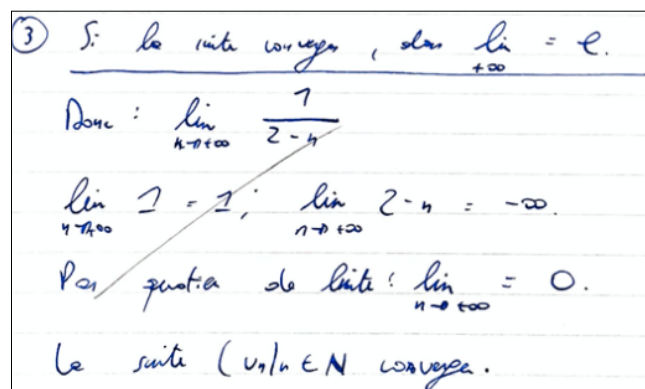 ③ Si la suite converge, alors lim +∞ = ℓ.
Donc : lim n→+∞ 1/(2-n)
lim n→+∞ 1 = 1; lim n→+∞ 2-n = -∞.
Par quotien de limite : lim n→+∞ = 0.
La suite (un)n∈N converge.